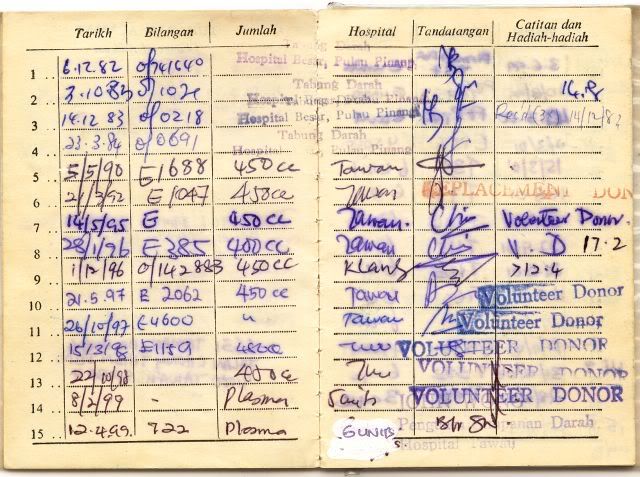 Tarikh Bilangan Jumlah Hospital Tandatangan Catitan dan Hadiah-hadiah
Tabung Darah
Hospital Besar, Pulau Pinang
1 6.12.82 0/41640
Tabung Darah
2 3.10.83
Hospital Besar, Pulau Pinang
3 14.12.83 0/0218 14/12/83
Tabung Darah
4 23.3.84 0/0691
Hospital Pulau Pinang
5 5/5/90 E1688 450cc Tawau
6 E1047 450cc Tawau REPLACEMENT DON
7 14/5/95 E 450cc Tawau. Volunteer Donor.
8 28/1/96 E385 400cc Tawau V D 17.2
9 1/12/96 0/142883 450cc Klang >12.4
10 21.5.97 E 2062 450cc Tawau Volunteer Donor
11 26/10/97 E4600 " Tawau Volunteer Donor
12 15/3/98 E1159 VOLUNTEER DONOR
13 22/10/98 450cc VOLUNTEER DONOR
14 8/2/99 - Plasma VOLUNTEER DONOR
15 12.4.99. 722 Plasma 6 UNITS
Darah
Hospital Tawau